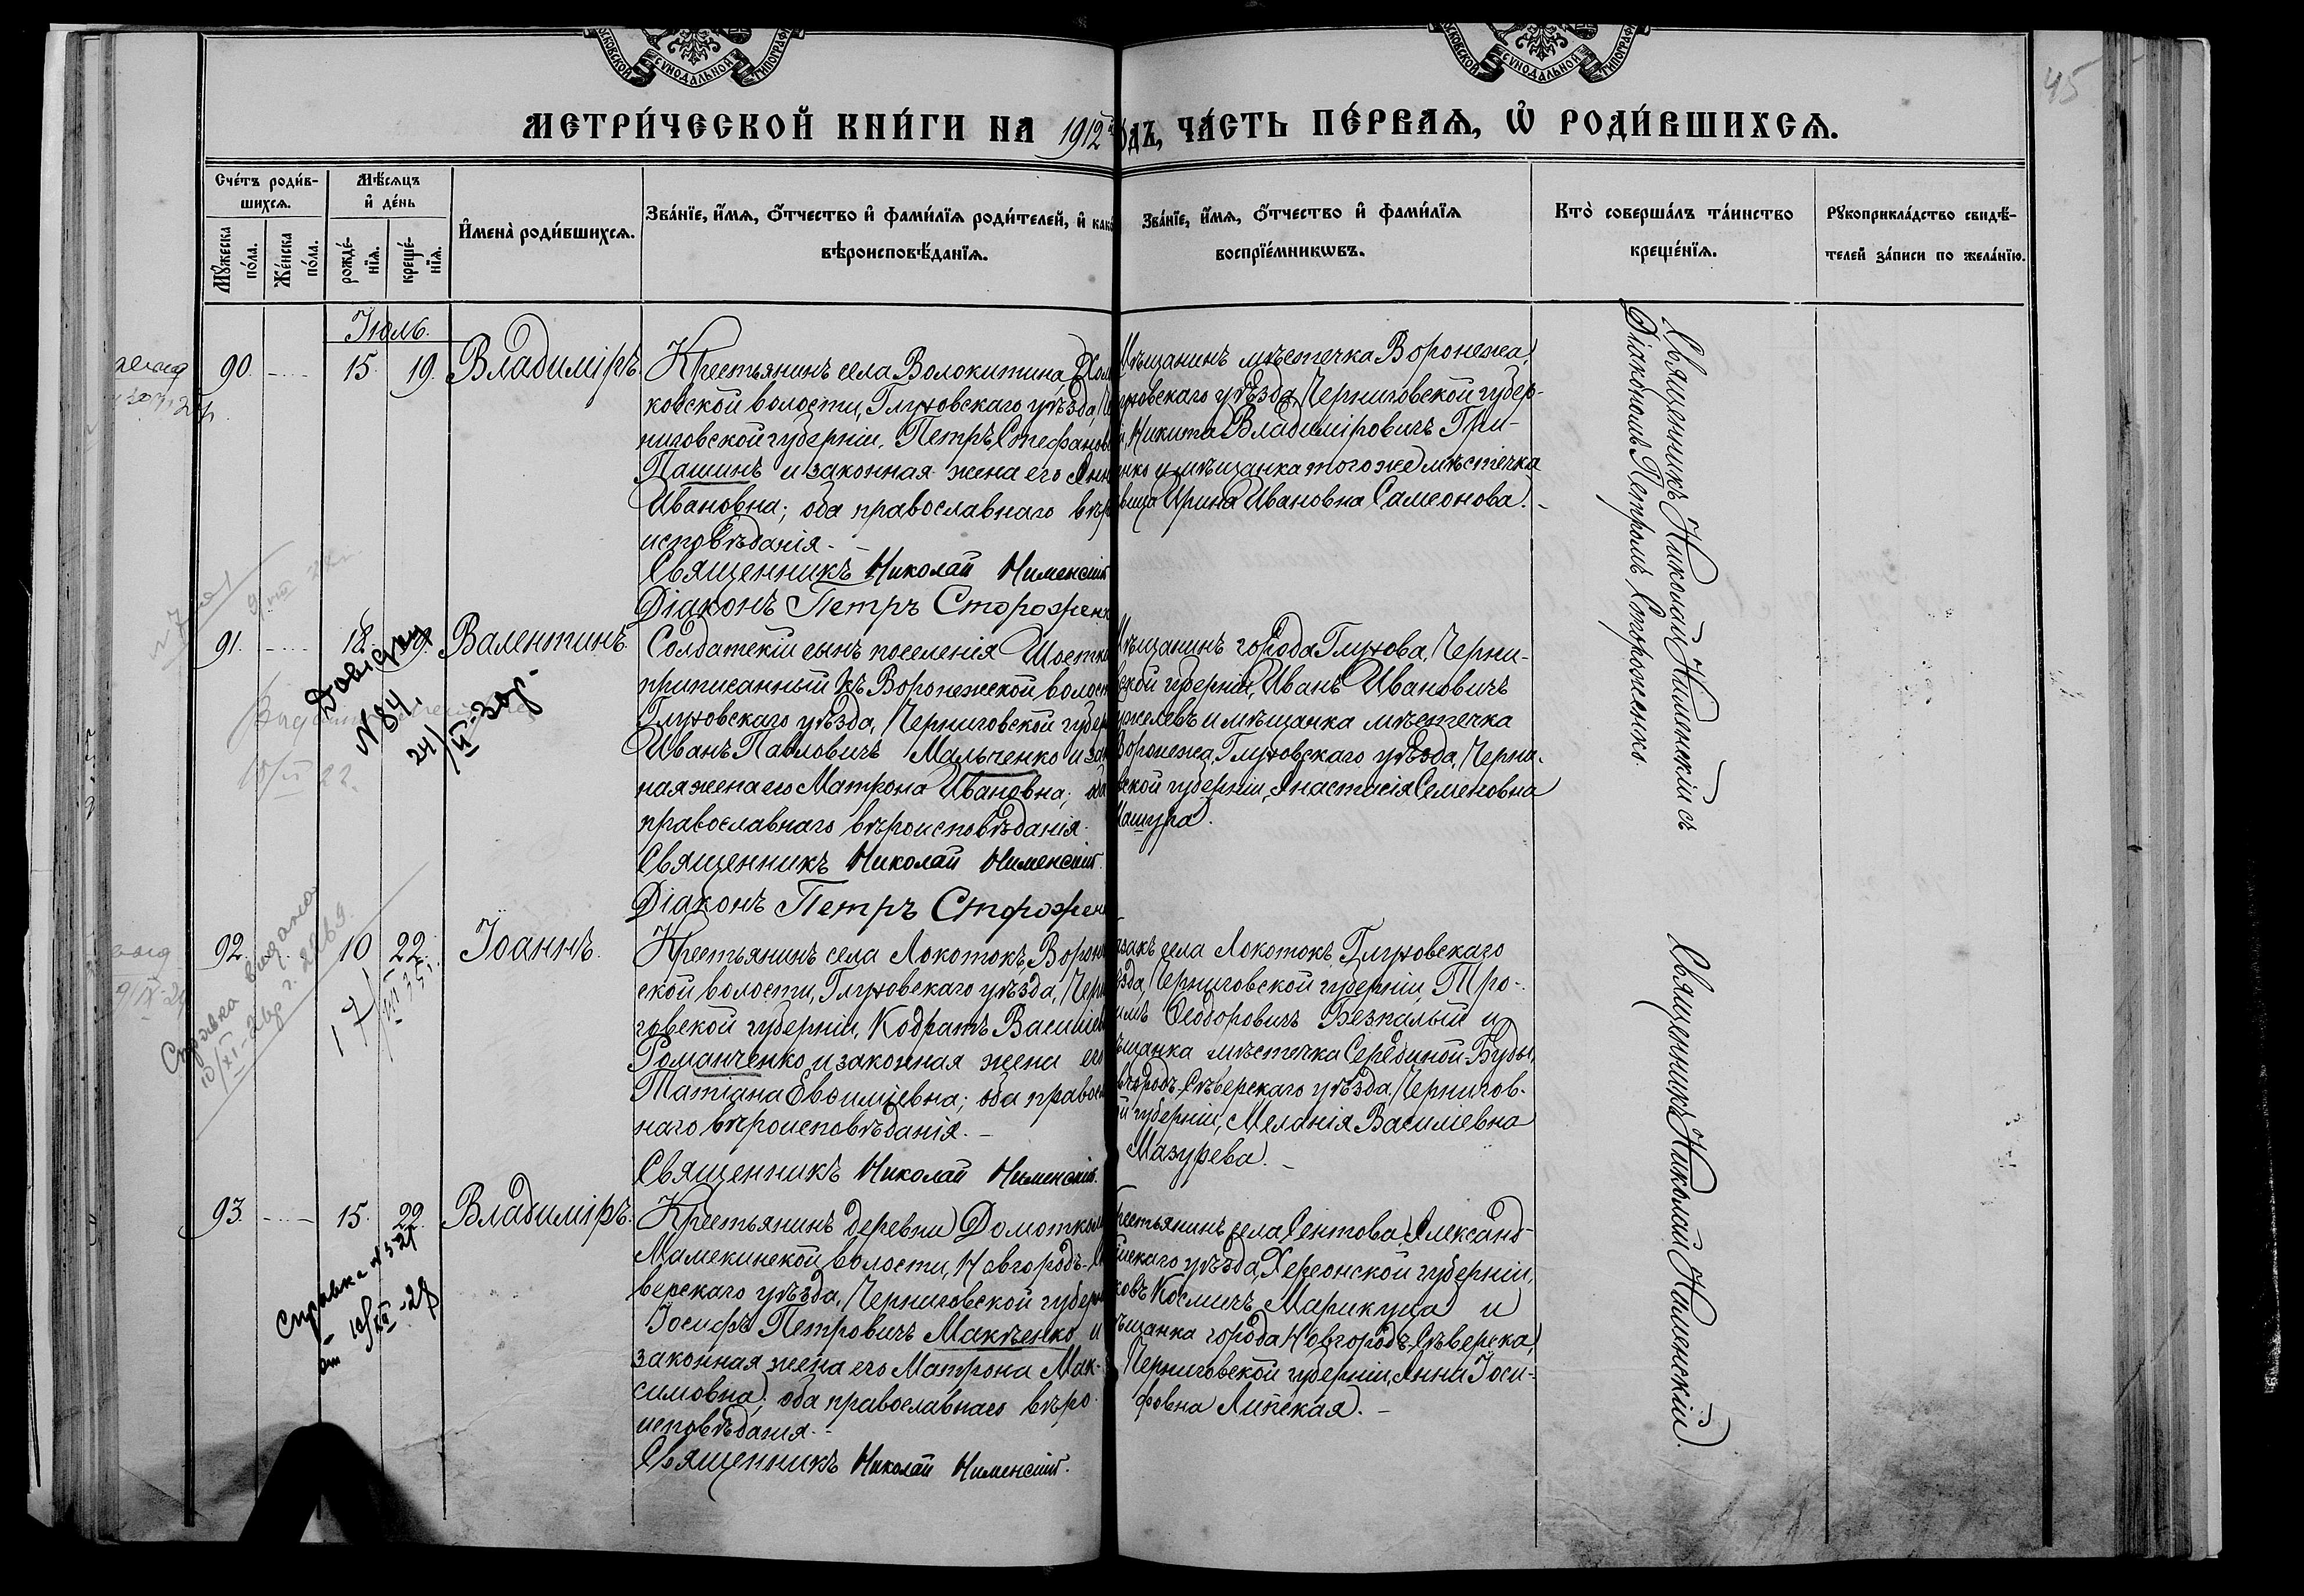 45
МОСКОВСКОЙ СѴНОДАЛЬНОЙ ТИПОГРАФ
МОСКОВСКОЙ СѴНОДАЛЬНОЙ ТИПОГРАФ
МЕТРИ́ЧЕСКОЙ КНИ́ГИ НА 1912 ОДЪ, ЧА́СТЬ ПЕ́РВАѦ, Ѡ҆ РОДИ́ВШИХСѦ.
Сче́тъ роди́в-
шихсѧ.
Мѣ́сѧцъ
и҆ де́нь
Мꙋ́жеска
по́ла.
Же́нска
по́ла.
рожде́-
нїѧ.
креще́-
нїѧ.
И҆мена̀ роди́вшихсѧ.
Зва́нїе, и҆́мѧ, ѻ҆́тчество и҆ фами́лїѧ роди́телей, и҆ како
вѣроисповѣ́данїѧ.
Зва́нїе, и҆́мѧ, ѻ҆́тчество и҆ фами́лїѧ
воспрїе́мникѡвъ.
Кто̀ соверша́лъ та́инство
креще́нїѧ.
Рꙋкоприкла́дство свидѣ́-
телей за́писи по жела́нїю.
Іюль.
90. 15. 19. Владиміръ.
Крестьянинъ села Волокитина, Хол
ковской волости, Глуховскаго уѣзда, Че
ниговской губерніи, Петръ Стефанов
Пашинъ и законная жена его Анн
Ивановна; оба православнаго вѣр
исповѣданія.
Священникъ Николай Нименскій
Діаконъ Петръ Сторожен
Мѣщанинъ мѣстечка Воронежа,
уховскаго уѣзда, Черниговской губер-
и, Никита Владиміровичъ Гри-
енко и мѣщанка того же мѣстечка
вица Ирина Ивановна Самсонова.
Священникъ Николай Нименскій съ
Діакономъ Петромъ Стороженко.
91. 18. 19. Валентинъ.
Довідку
N 84.
24/II-30р.
Солдатскій сынъ поселенія Шостки
приписанный къ Воронежской волост
Глуховскаго уѣзда, Черниговской губер
Иванъ Павловичъ Мальченко и зак
ная жена его Матрона Ивановна; оба
православнаго вѣроисповѣданія.
Священникъ Николай Нименскій.
Діаконъ Петръ Сторожен
Мѣщанинъ города Глухова, Черни-
вской губерніи, Иванъ Ивановичъ
ужелевъ и мѣщанка мѣстечка
Воронежа, Глуховскаго уѣзда, Черни-
вской губерніи, Анастасія Семеновна
Машура.
92. 10 22. Іоаннъ.
Справка видана
Крестьянинъ села Локотокъ, Ворон
ской волости, Глуховскаго уѣзда, Черн
говской губерніи, Кодратъ Василіев
Романченко и законная жена его
Татіана Евѳиміевна; оба правос
наго вѣроисповѣданія.
Священникъ Николай Нименскій.
азакъ села Локотокъ, Глуховскаго
ѣзда, Черниговской губерніи, Тро-
имъ Ѳеодоровичъ Безпалый и
ѣщанка мѣстечка Середмной-Буды,
вгородъ-Сѣверскаго уѣзда, Чернигов-
й губерніи, Меланія Василіевна
Мазурева.
Священникъ Николай Нименскій.
93. 15. 22. Владиміръ.
Справка N 321
от 10/XII-28р
Крестьянинъ деревни Домоткан
Мамекинской волости, Новгородъ-Сѣ
верскаго уѣзда, Черниговской губерн
Іосифъ Петровичъ Макѣенко и
законная жена его Матрона Мак-
симовна; оба православнаго вѣро-
исповѣданія.
Священникъ Николай Нименскій.
рестьянинъ села Сентова, Александ-
ійскаго уѣзда, Херсонской губерніи,
ковъ Космичъ Марикуца и
ѣщанка города Новгородъ-Сѣверска,
Черниговской губерніи, Анна Іоси-
фовна Липская.